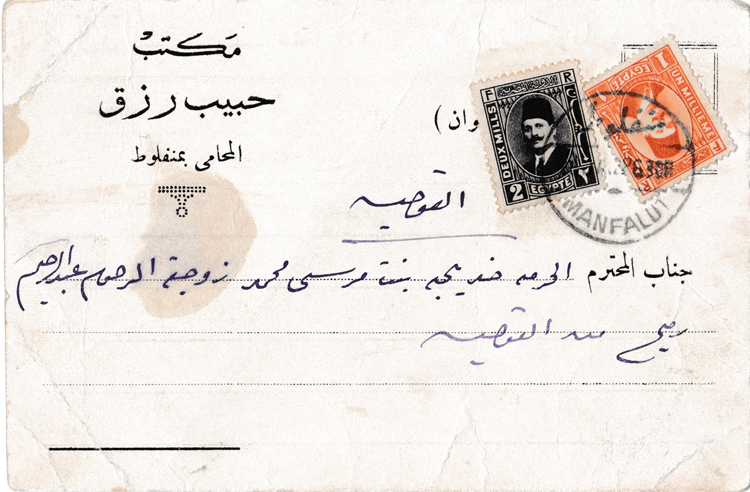 مكتب
حبيب رزق
المحامى بمنفلوط
وان )
DEUX MILLS
F R
2 EGYPTE ٢
EGYPTE
UN MILLIEME
1
منفلوط
MANFALUT
القوصيه
جناب المحترم الحرمه خديجه بنت مرسى محمد زوجة المرحوم عبدالرحيم
من القوصيه